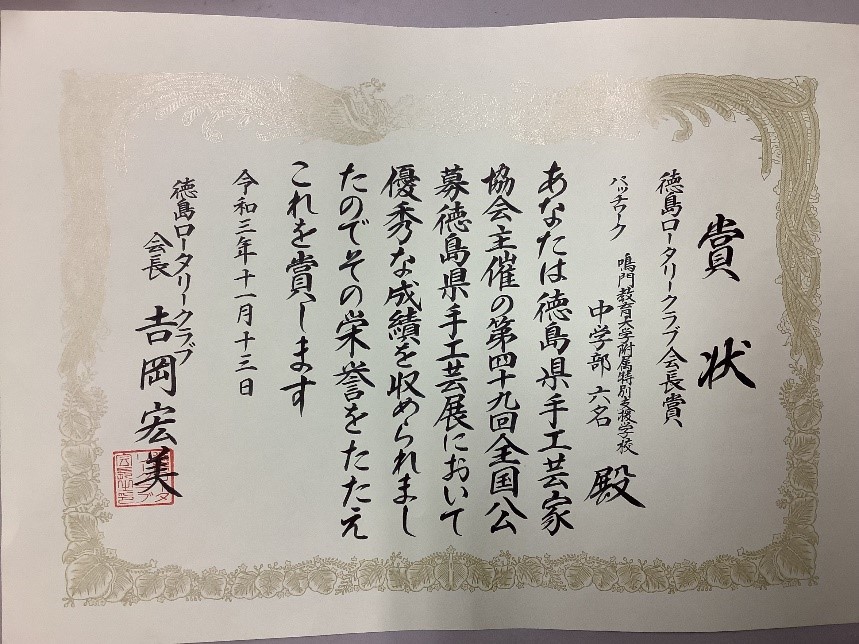 賞状
徳島ロータリークラブ会長賞
パッチワーク
鳴門教育大学附属特別支援学校
中学部 六名 殿
あなたは徳島県手工芸家
協会主催の第四十九回全国公
募徳島県手工芸展において
優秀な成績を収められまし
たのでその栄誉をたたえ
これを賞します
令和三年十一月十三日
徳島ロータリークラブ
会長 吉岡宏美